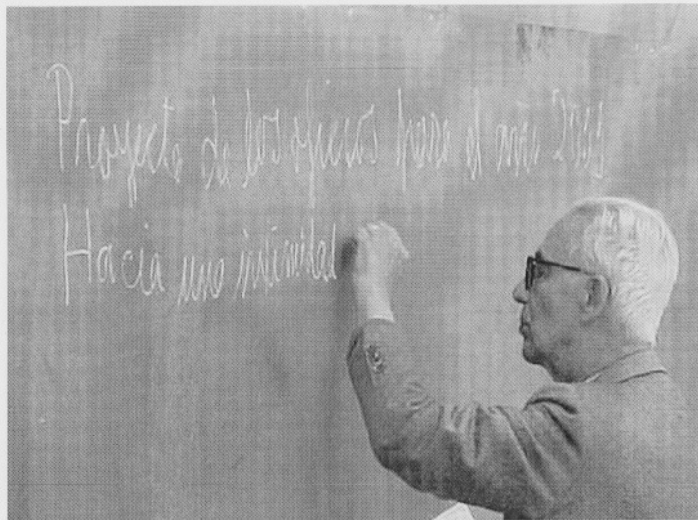 Proyecto de los oficios para el año
Hacia una intimidad